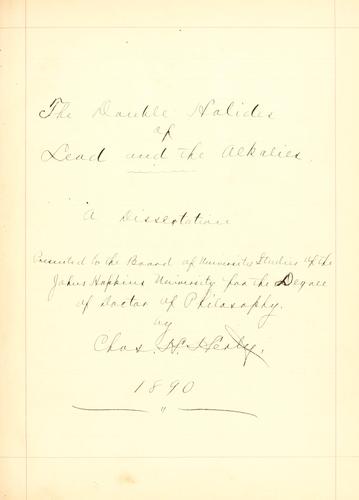 The Double Halides
of
Lead and the Alkalies.
A Dissertation
Presented to the Board of University Studies of the
Johns Hopkins University for the Degree
of Doctor of Philosophy.
by
Chas. H. Herty.
1890
"